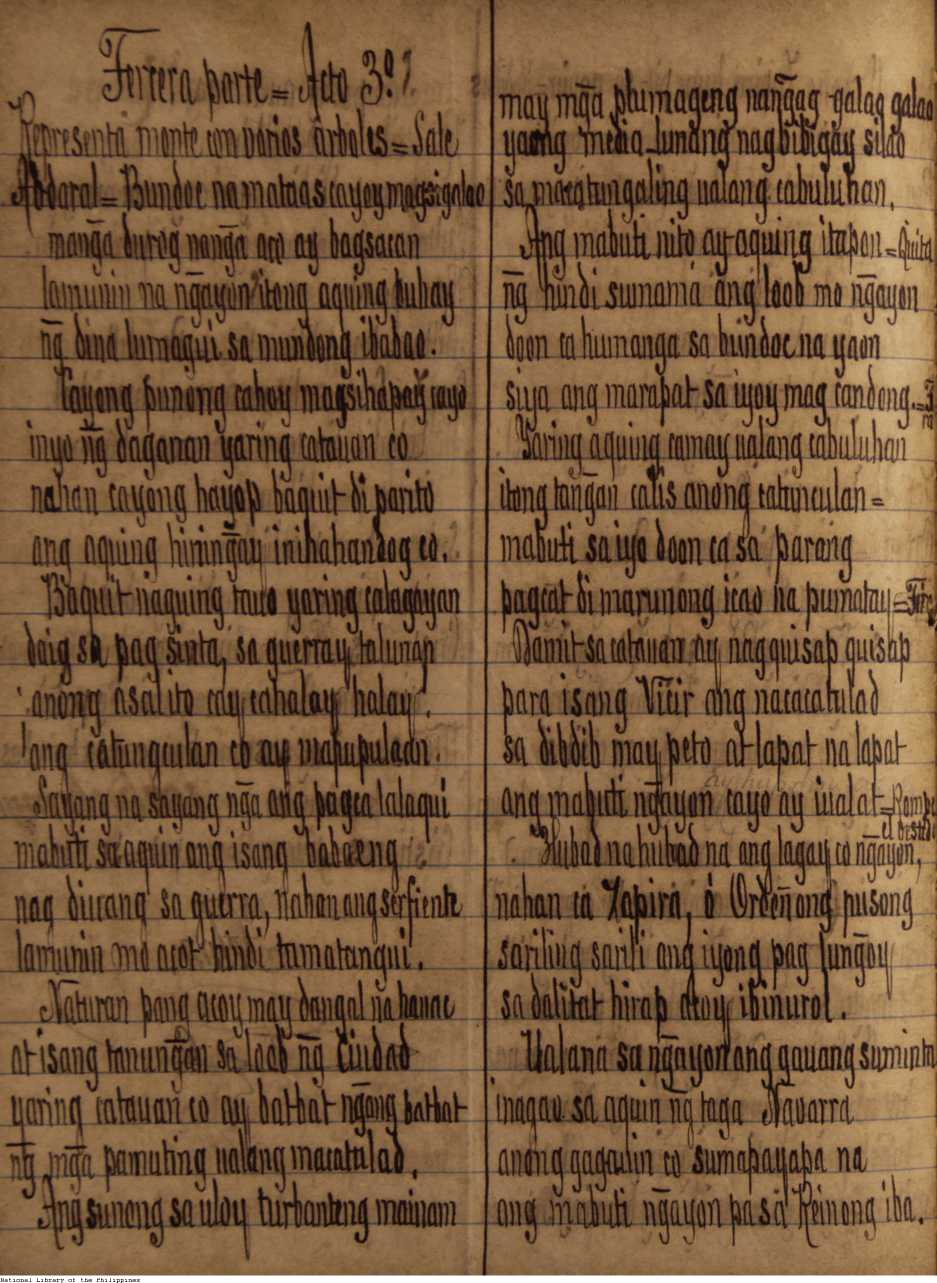 Tercera parte = Acto 3º
Representa monte con varios arboles = Sale
Abdaral = Bundoc na mataas cayoy magsigalao
manḡa durog nanḡa aco ay bagsacan
lamunin na nḡayon itong aquing buhay
nḡ dina lumagui sa mundong ibabao.
Cayong punong cahoy magsihapay cayo
inyo nḡ daganan yaring catauan co
nahan cayong hayop baquit di parito
ang aquing hininḡay inihahandog co.
Baquit naguing tauo yaring calagayan
daig sa pag sinta, sa guerray talunan
anong asal ito cay cahalay halay,
ang catungculan co ay mapupulaan.
Sayang na sayang nḡa ang pagca lalaqui
mabuti sa aquin ang isang babaeng
nag dicang sa guerra, nahan ang serfiente
lamunin mo acot hindi tumatangui.
Naturan pang acoy may dangal na hauac
at isang tanunḡan sa loob nḡ Ciudad
yaring catauan co ay batbat nḡong batbat
nḡ mḡa pamuting ualang macatulad.
Ang sunong sa uloy turbanteng mainam
may mḡa plumageng nanḡag-galao galao
yaong media-lunang nagbibigay silao
sa macatungaling ualang cabuluhan.
Ang mabuti nito ay aquing itapon = Quita
nḡ hindi sumama ang loob mo nḡayon
doon ca humanga sa bundoc na yaon
siya ang marapat sa iyoy mag candong. =
Yaring aquing camay ualang cabuluhan
itong tanḡan calis anong catunculan =
mabuti sa iyo doon ca sa parang
pagcat di marunong icao na pumatay =
Damit sa catauan ay nagquisap quisap
para isang Vicir ang nacacatulad
sa dibdib may peto at lapat na lapat
ang mabuti nḡayon cayo ay iualat = Rompe
el bestido
Hubad na hubad na ang lagay co nḡayon,
nahan ca Zapira, ó Ordeñong pusong
sariling sarili ang iyong pag lunḡoy
sa dalitat hirap atoy ibinurol.
Uala na sa nḡayon ang gauang suminta
inagao sa aquin nḡ taga Navarra
anong gagauin co sumapayapa na
ang mabuti nḡayon pa sa Reinong iba.
National Library of the Philippines